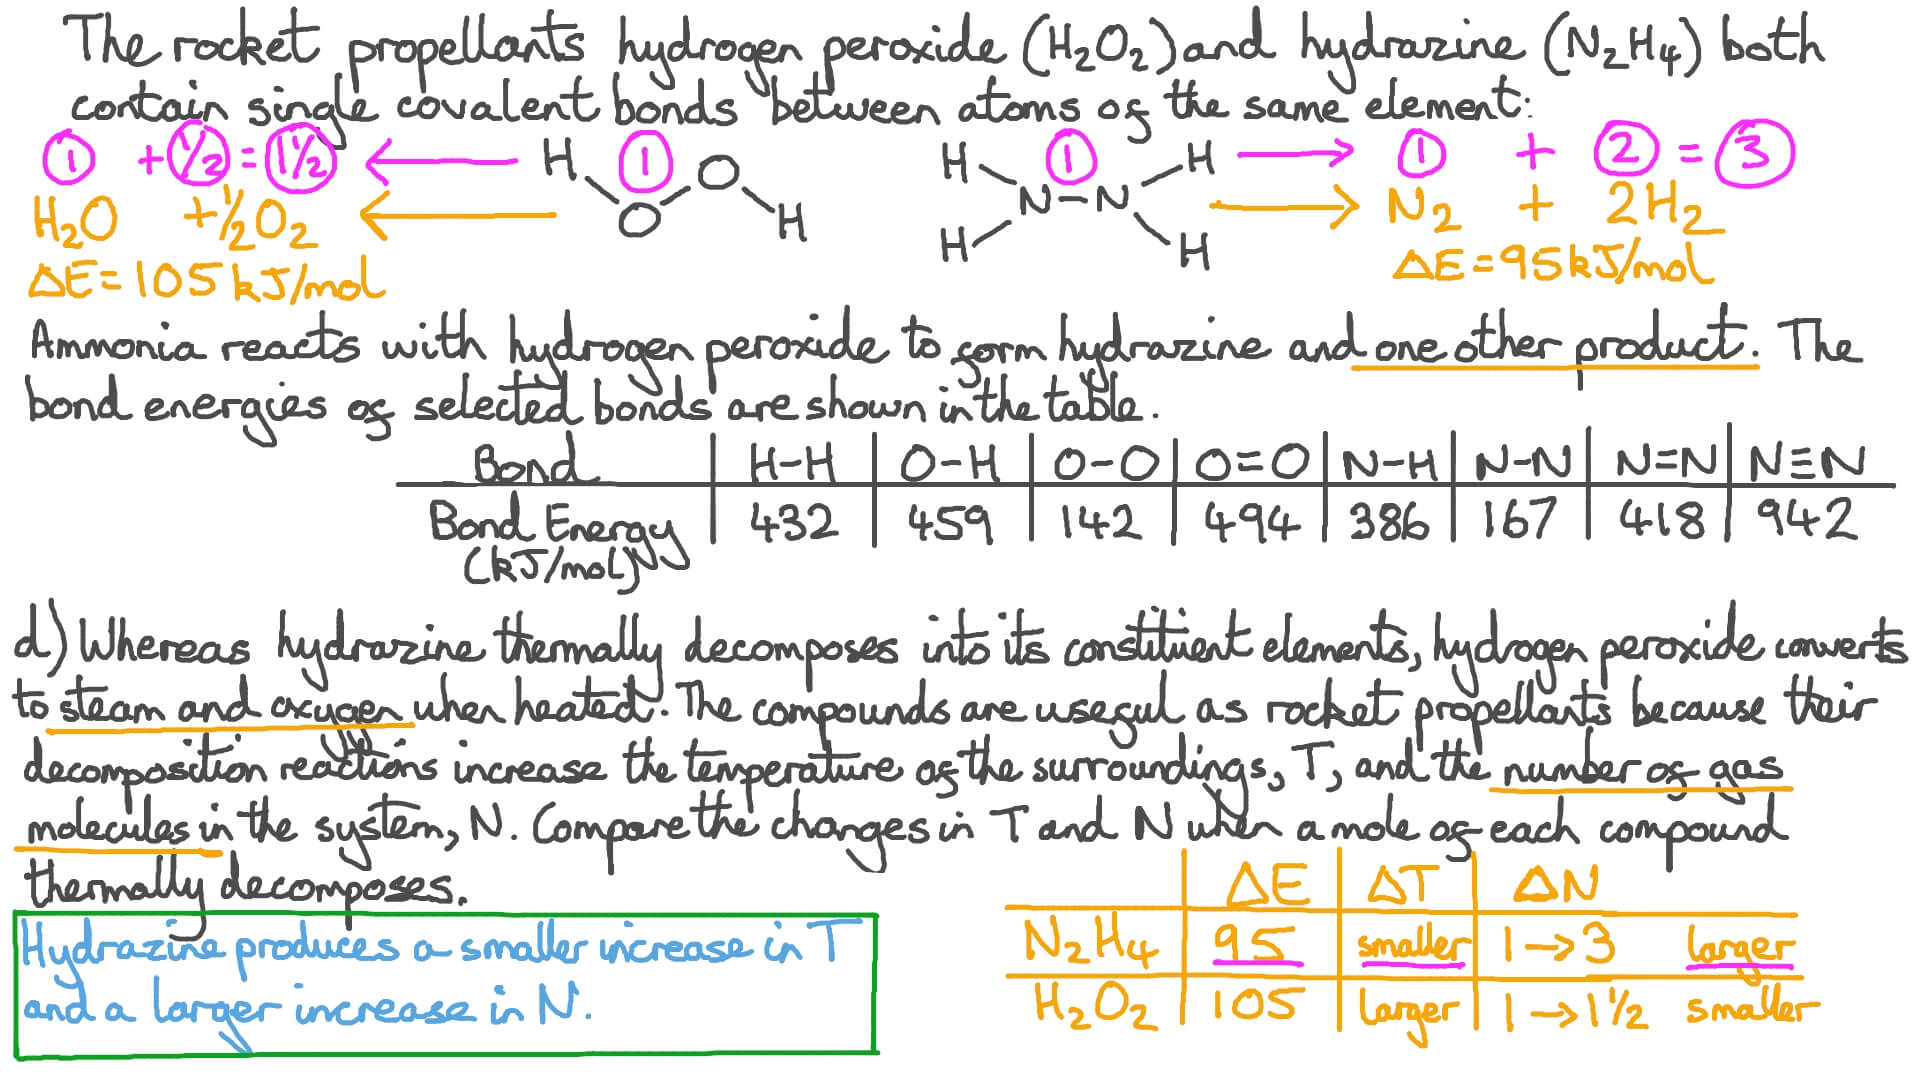 The rocket propellants hydrogen peroxide (H₂O₂) and hydrazine (N₂H₄) both
contain single covalent bonds between atoms of the same element:
1 + ½ = 1½ ← 1
H O O H
H₂O + ½O₂ ←
ΔE = 105 kJ/mol
1 → 1 + 2 = 3
H H N-N H H
→ N₂ + 2H₂
ΔE = 95 kJ/mol
Ammonia reacts with hydrogen peroxide to form hydrazine and one other product. The
bond energies of selected bonds are shown in the table.
Bond H-H O-H O-O O=O N-H N-N N=N N≡N
Bond Energy 432 459 142 494 386 167 418 942
(kJ/mol)
d) Whereas hydrazine thermally decomposes into its constituent elements, hydrogen peroxide converts
to steam and oxygen when heated. The compounds are useful as rocket propellants because their
decomposition reactions increase the temperature of the surroundings, T, and the number of gas
molecules in the system, N. Compare the changes in T and N when a mole of each compound
thermally decomposes.
Hydrazine produces a smaller increase in T
and a larger increase in N.
ΔE ΔT ΔN
N₂H₄ 95 smaller 1→3 larger
H₂O₂ 105 larger 1→1½ smaller